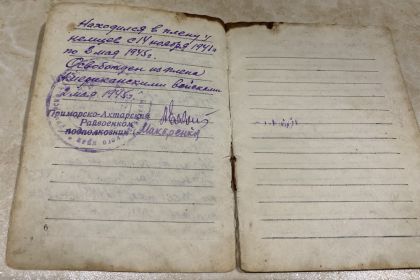 Находился в плену у
немцев с 14 ноября 1941 г.
по 2 мая 1945 г.
Освобожден из плена
Американскими войсками
2 мая 1945 г.
Приморско-Ахтарский
Райвоенком
подполковник Макаренко